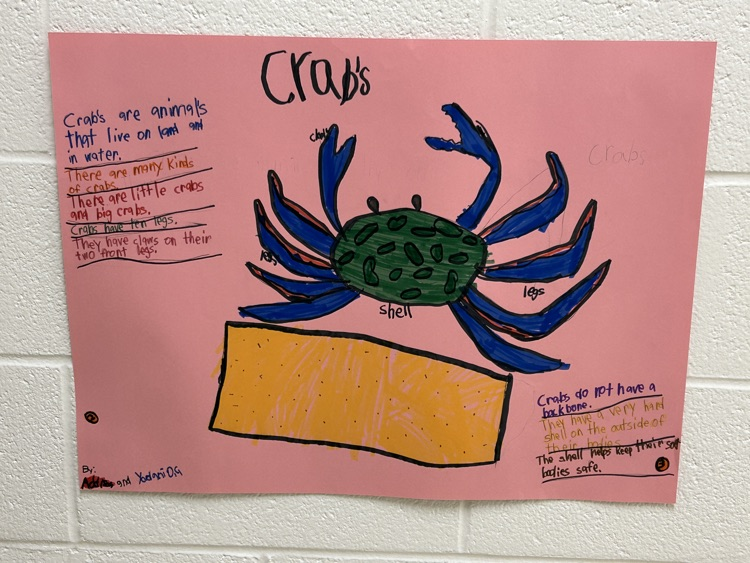 Crab's
Crab's are animals
that live on land and
in water.
There are many kinds
of crabs.
There are little crabs
and big crabs.
Crabs have ten legs.
They have claws on their
two front legs.
Crabs
legs
legs
shell
Crabs do not have a
backbone.
They have a very hard
shell on the outside of
their bodies
The shell helps keep their soft
bodies safe.
By:
and